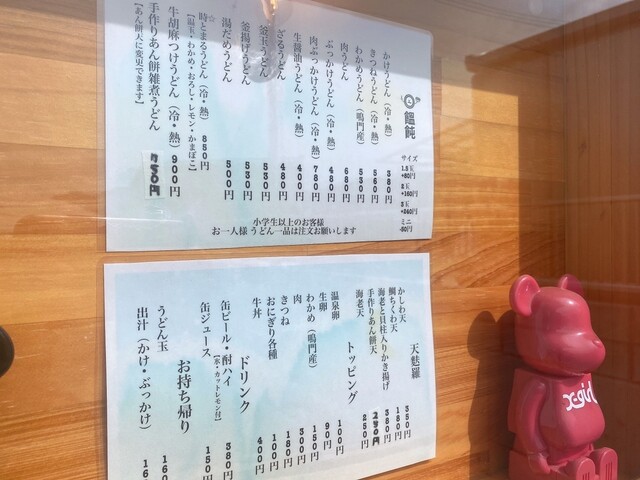 饂飩
サイズ
1.5玉
+80円
2玉
+160円
3玉
+240円
ミニ
-50円
かけうどん（冷・熱） 380円
きつねうどん（冷・熱） 560円
わかめうどん（鳴門産） 530円
肉うどん 680円
ぶっかけうどん（冷・熱） 480円
肉ぶっかけうどん（冷・熱） 780円
生醤油うどん 400円
ざるうどん 480円
釜玉うどん 530円
釜揚げうどん 530円
湯だめうどん 500円
☆時とまるうどん（冷・熱） 850円
【温玉・わかめ・おろし・レモン・かまぼこ】
牛胡麻つけうどん（冷・熱） 900円
手作りあん餅雑煮うどん 750円
【あん餅天に変更できます】
小学生以上のお客様
お一人様 うどん一品は注文お願いします
天麩羅
かしわ天 350円
鯛ちくわ天 180円
海老と貝柱入りかき揚げ 380円
手作りあん餅天 230円
海老天 250円
トッピング
温泉卵 100円
生卵 90円
わかめ（鳴門産） 150円
肉 300円
きつね 180円
おにぎり各種 100円
牛丼 400円
ドリンク
缶ビール・酎ハイ 380円
【氷・カットレモン付】
缶ジュース 150円
お持ち帰り
うどん玉 160
出汁（かけ・ぶっかけ） 16
X-girl